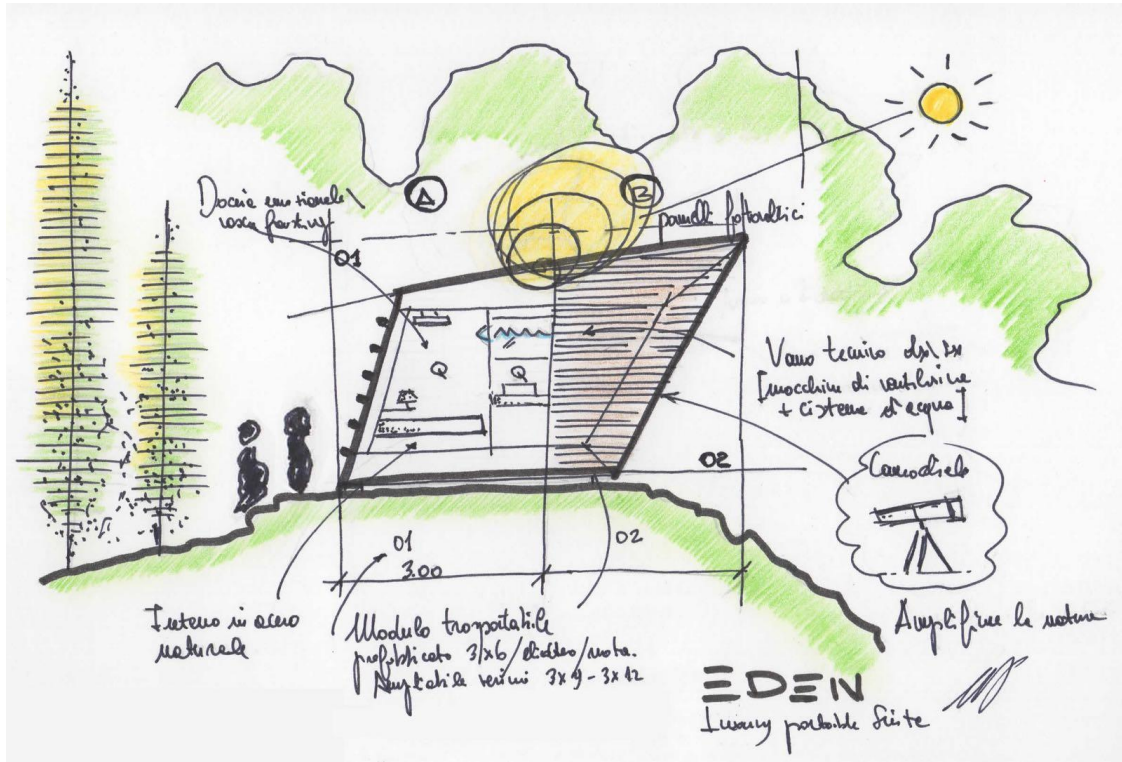 Doccia emozionale
A
B
pannelli fotovoltaici
01
Vano tecnico
[macchine di ventilazione
+ cisterna d'acqua]
Q
Q
02
Cannocchiale
01
02
3.00
Interno in acero
naturale
Modulo trasportabile
prefabbricato 3x6
Ampliabile versioni 3x9 - 3x12
Amplificare la natura
EDEN
Luxury portable Suite